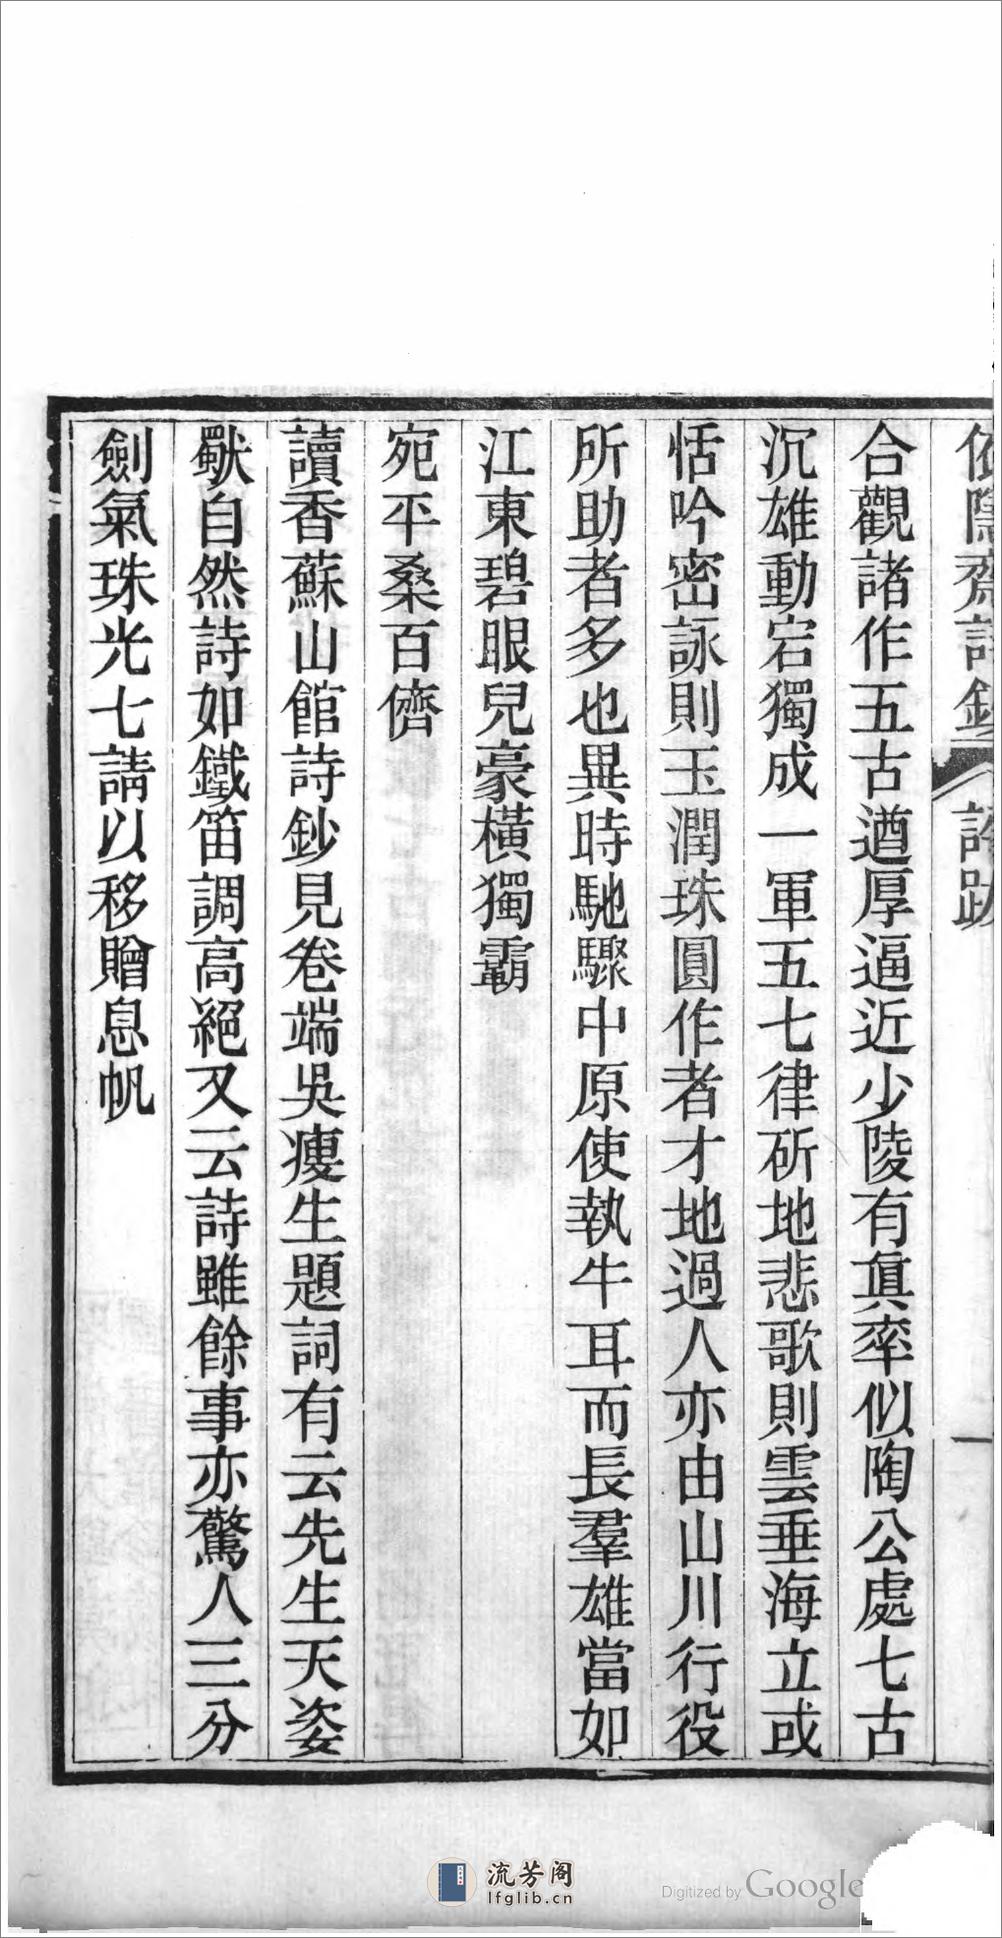 依隱齋詩鈔 評跋 一
合觀諸作五古遒厚逼近少陵有眞率似陶公處七古
沉雄動宕獨成一軍五七律斫地悲歌則雲垂海立或
恬吟密詠則玉潤珠圓作者才地過人亦由山川行役
所助者多也異時馳驟中原使執牛耳而長羣雄當如
江東碧眼兒豪橫獨霸
宛平桑百儕
讀香蘇山館詩鈔見卷端吳瘦生題詞有云先生天姿
猷自然詩如鐵笛調高絕又云詩雖餘事亦驚人三分
劍氣珠光七請以移贈息帆
流芳阁
lfglib.cn
Digitized by Google